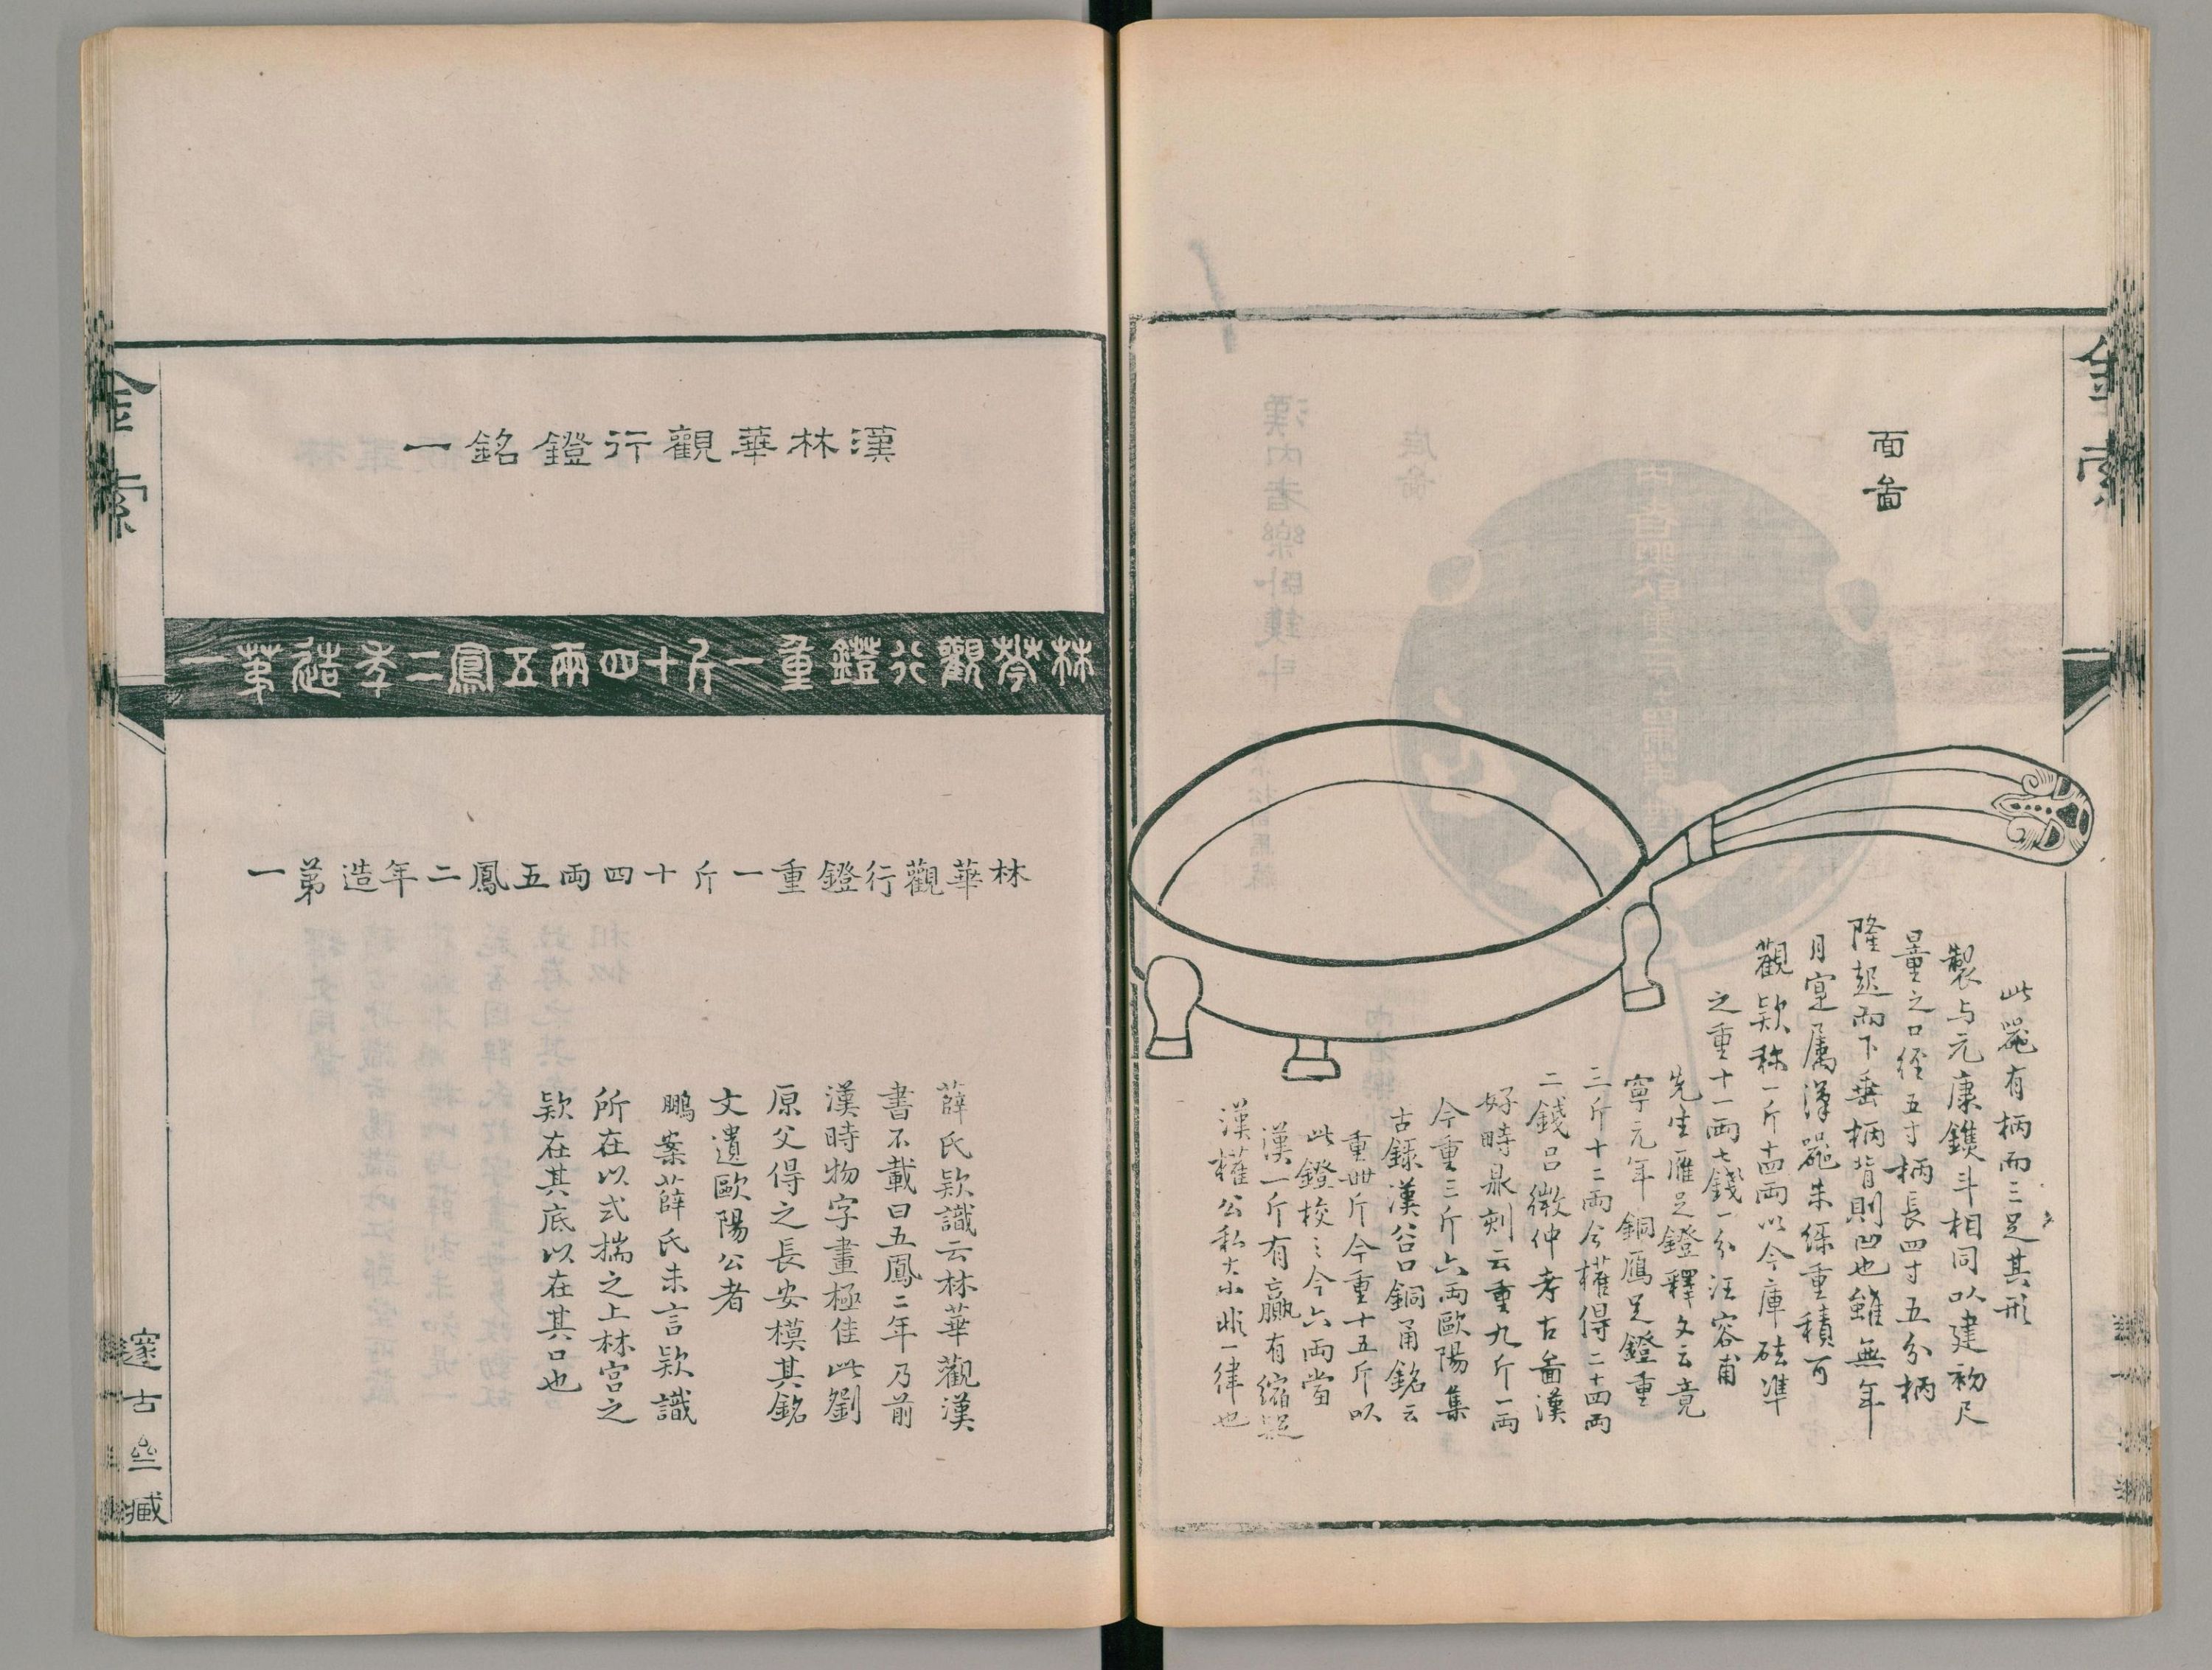 金索
面啚
此器有柄而三足其形
製与元康鐎斗相同以建初尺
量之口徑五寸柄長四寸五分柄
隆起而下垂柄背則凹也雖無年
月寔属漢器朱綠重積可
觀欵称一斤十四兩以今庫砝準
之重十一兩七錢一分汪容甫
先生雁足鐙釋文云竟
寧元年銅鴈足鐙重
三斤十二兩今權得二十四兩
二錢吕微仲考古啚漢
好畤鼎刻云重九斤一兩
今重三斤六兩歐陽集
古録漢谷口銅甬銘云
重卌斤今重十五斤以
此鐙校之今六兩當
漢一斤有贏有縮疑
漢權公私大小非一律也
漢林華觀行鐙銘一
林華觀行鐙重一斤十四兩五鳳二年造苐一
林華觀行鐙重一斤十四兩五鳳二年造苐一
薛氏欵識云林華觀漢
書不載曰五鳳二年乃前
漢時物字畫極佳此劉
原父得之長安模其銘
文遺歐陽公者
鵬案薛氏未言欵識
所在以式揣之上林宫之
欵在其底以在其口也
金索
邃古 藏